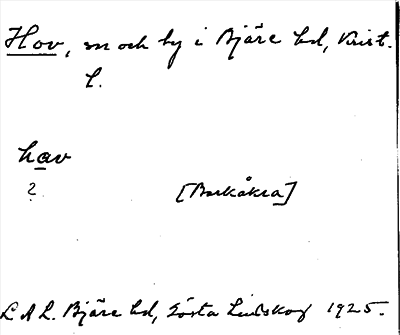 Hov, sn och by i Bjäre hd, Krist.
L.
hav
?
[Barkåkra]
L A L. Bjäre hd, Gösta Lindskog 1925.